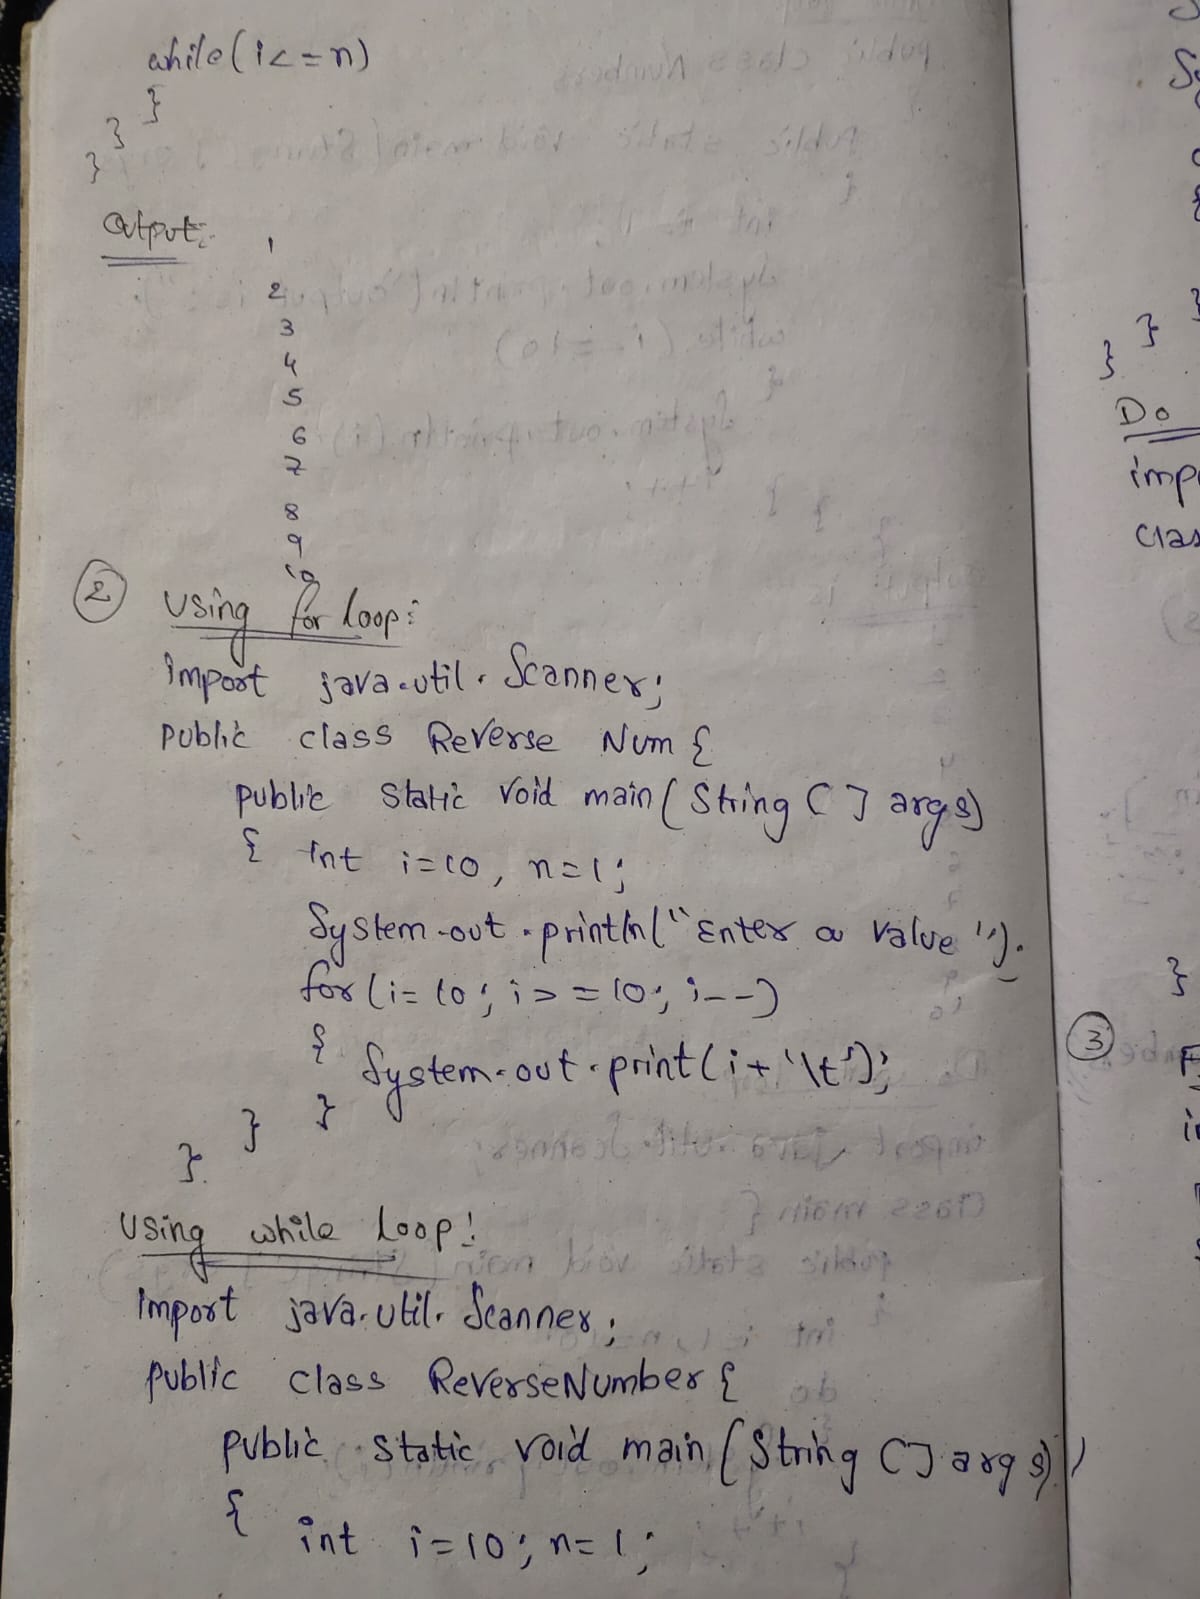 while(i<=n)
}
}
}
Output:
1
2
3
4
5
6
7
8
9
10
② Using for loop:
import java.util.Scanner;
public class Reverse Num {
public static void main(String [] args)
{ int i=10, n=1;
System.out.println("Enter a value ").
for(i=10; i>=10; i--)
{ System.out.print(i+'\t');
}
}
}.
Using while loop:
import java.util.Scanner;
public class ReverseNumber {
public static void main(String [] args)
{ int i=10; n=1;
}
}
}
Do
③
}